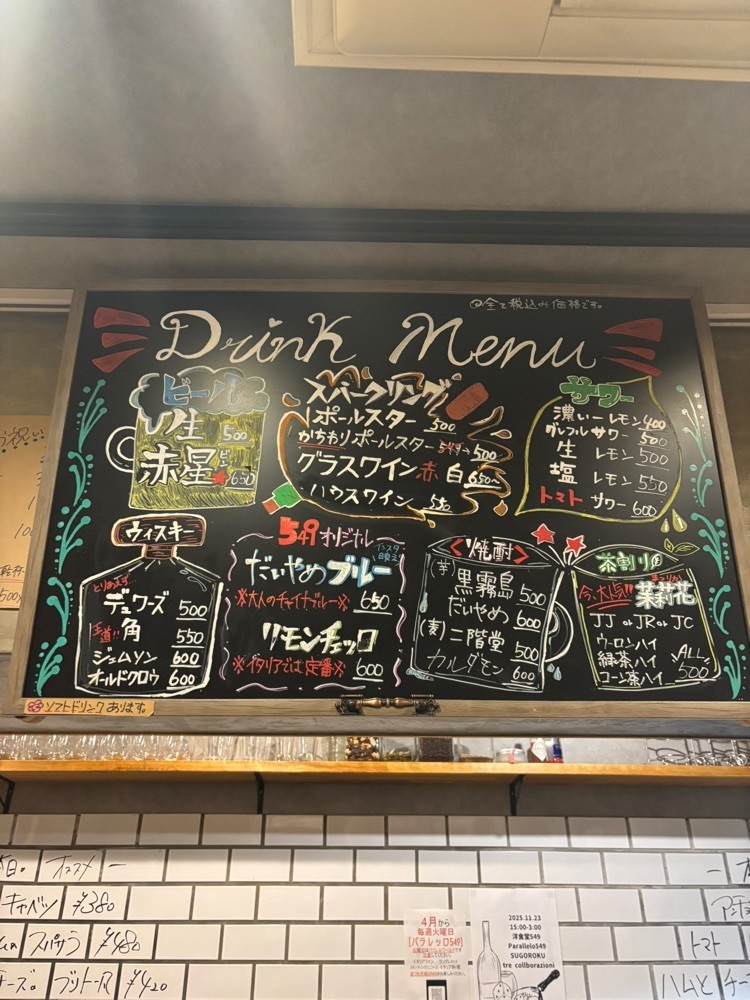 全て税込み価格です。
Drink Menu
ビール
生 500
赤星 ビン 650
スパークリング
ポールスター 500
かちわりポールスター 549→500
グラスワイン 赤 白 650~
ハウスワイン 550
サワー
濃いーレモン 400
グレフルサワー 500
生レモン 500
塩レモン 550
トマトサワー 600
ウィスキー
とりあえず
デュワーズ 500
王道!! 角 550
ジェムソン 600
オールドクロウ 600
549オリジナル
だいやめブルー
※大人のチャイナブルー※ 650
リモンチェッロ
※イタリアでは定番※ 600
<焼酎>
(芋) 黒霧島 500
だいやめ 600
(麦) 二階堂 500
カルダモン 600
茶割り
今、大人気!! 茉莉花
まつりか
JJ or JR or JC
ウーロンハイ
緑茶ハイ
コーン茶ハイ
ALL 500
ソフトドリンクあります。
本日。オススメー
キャベツ ¥380
スパサラ ¥480
チーズ。ブリトーR ¥420
トマト
ハムとチー
4月から
毎週火曜日
[パラレッロ549]
2025.11.23
15:00-3:00
洋食堂549
Parallelo549
SUGOROKU
tre collborazioni